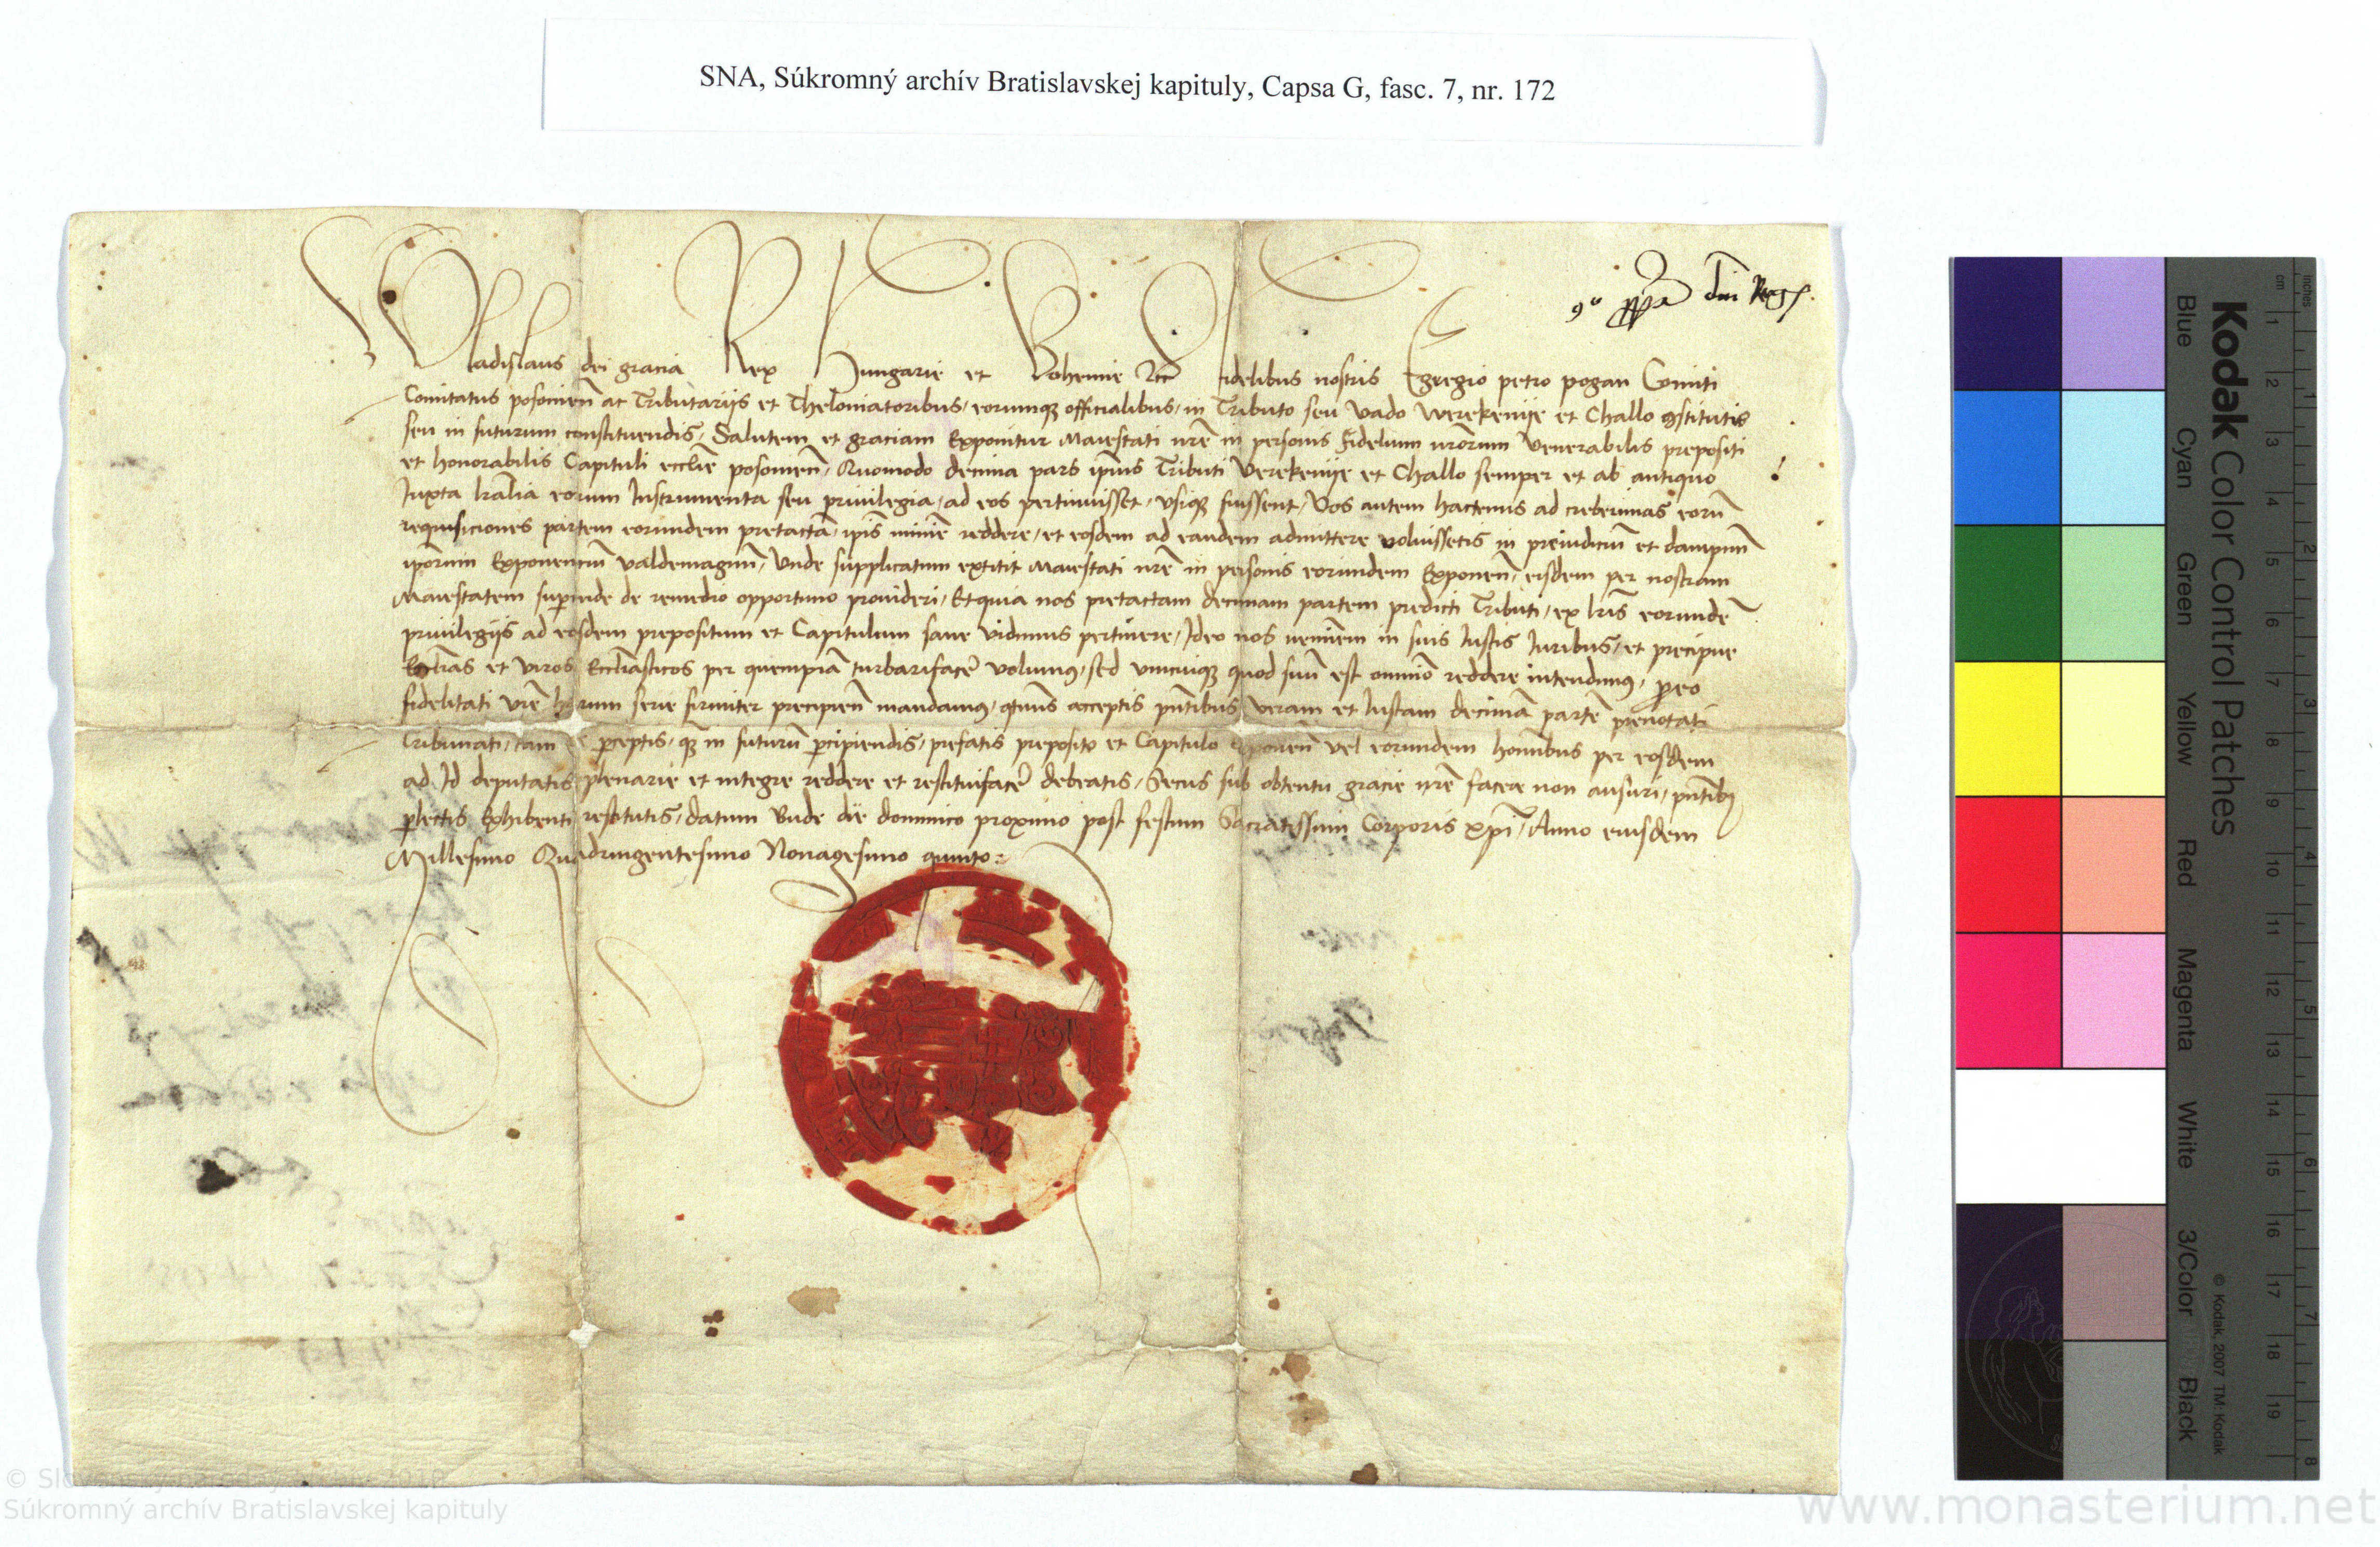 SNA, Súkromný archív Bratislavskej kapituly, Capsa G, fasc. 7, nr. 172
dni Regs
Wladislaus dei gracia Rex Hungarie et Bohemie Fidelibus nostris Egregio petro pogan Comiti
Comitatus posonien̄ ac Tributarijs et Theloniatoribus, eorumqꝫ officialibus, in Tributo seu Vado Werekenije et Challo ꝯstitutis
seu in futurum constituendis, Salutem et graciam Exponitur Maiestati nrē in personis fidelium nrōrum Venerabilis prepositi
et honorabilis Capituli ecclīe posonien̄, Quomodo decima pars ipīus Tributi Verekenije et Challo semper et ab antiquo
Juxta lrālia eorum Instrumenta seu priuilegia, ad eos pertinuisset, vsiqꝫ fuissent, Vos autem hactenus ad creberrimas eorū
requisiciones partem eorundem pretactā, ipīs minīe reddere, et eosdem ad eandem admittere voluissetis in preiudiciū et dampnū
ipōrum Exponenciū valdemagnū, Vnde supplicatum extitit Maiestati nrē in personis eorundem Exponen̄, eisdem per nostram
Maiestatem superinde de remedio opportuno prouideri, Et quia nos pretactam decimam partem predicti Tributi, ex lrīs eorundē
priuilegijs ad eosdem prepositum et Capitulum sane vidimus pertinere, Ideo nos neminem in suis Iustis Iuribus, et precipue
Ecclīas et viros Ecclīasticos per quempiā turbarifacer̄ volumꝰ, sed vnicuiqꝫ quod suū est omnīo reddere intendimꝰ, ꝓeo
fidelitati vrē harum serie firmiter precipien̄ mandamꝰ, qtīnus acceptis pn̄tibus veram et Iustam decimā partē prenotati
Tributi, tam perceptis, qꝫ in futurū ꝑcipiendis, prefatis preposito et Capitulo exponen̄ vel eorundem hominibus per eosdem
ad Id deputatis plenarie et integre reddere et restituifacer̄ debeatis, Secus sub obtentu gracie nrē facere non ausuri, pn̄tibꝫ
ꝑlectis Exhibenti restitutis, datum Bude die dominico proximo post festum Sacratissimi Corporis xpī, Anno eiusdem
Millesimo Quadringentesimo Nonagesimo quinto.
Kodak Color Control Patches
Blue Cyan Green Yellow Red Magenta White 3/Color Black
© Kodak, 2007 TM: Kodak
inches 1 2 3 4 5 6 7 8
cm 1 2 3 4 5 6 7 8 9 10 11 12 13 14 15 16 17 18 19
Súkromný archív Bratislavskej kapituly
www.monasterium.net